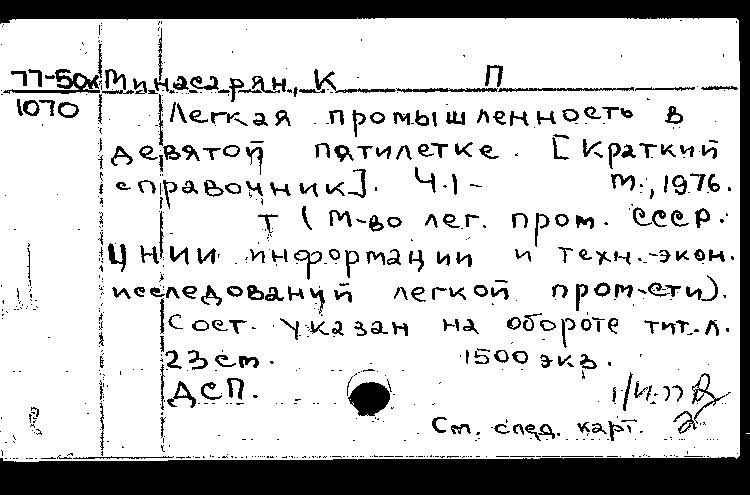 77-50к Минасарян, К П
1070 Легкая промышленность в
девятой пятилетке. [Краткий
справочник]. Ч.1- М., 1976.
т (М-во лег. пром. СССР.
ЦНИИ информации и техн.-экон.
исследований легкой пром-сти).
Сост. указан на обороте тит.л.
23 см. 1500 экз.
ДСП.
См. след. карт.